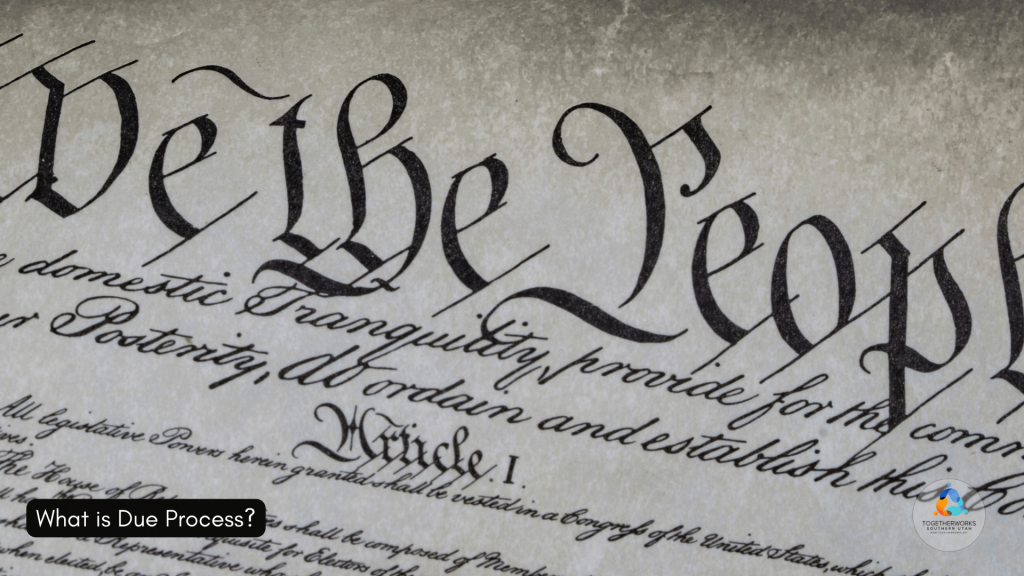 We the People
domestic Tranquility, provide for the comm
Posterity, do ordain and establish this Co
Article. I.
All legislative Powers herein granted shall be vested in a Congress of the United States, which
The House of shall be composed of Mem
Electors of the
Representative who
when elected, be an
What is Due Process?
TOGETHERWORKS
SOUTHERN UTAH